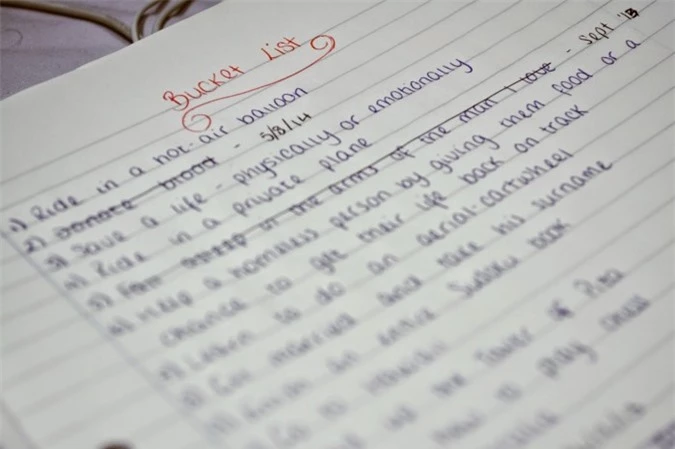 Bucket List
1) Ride in a hot-air balloon
2) Donate blood - 5/8/14
3) Save a life - physically or emotionally
4) Ride in a private plane
5) Fall asleep in the arms of the man I love - Sept '13
6) Help a homeless person by giving them food or a
chance to get their life back on track
7) Learn to do an aerial-cartwheel
8) Get married and take his surname
9) Finish an entire Sudoku book
Go to
Tower of Pisa
to play chess